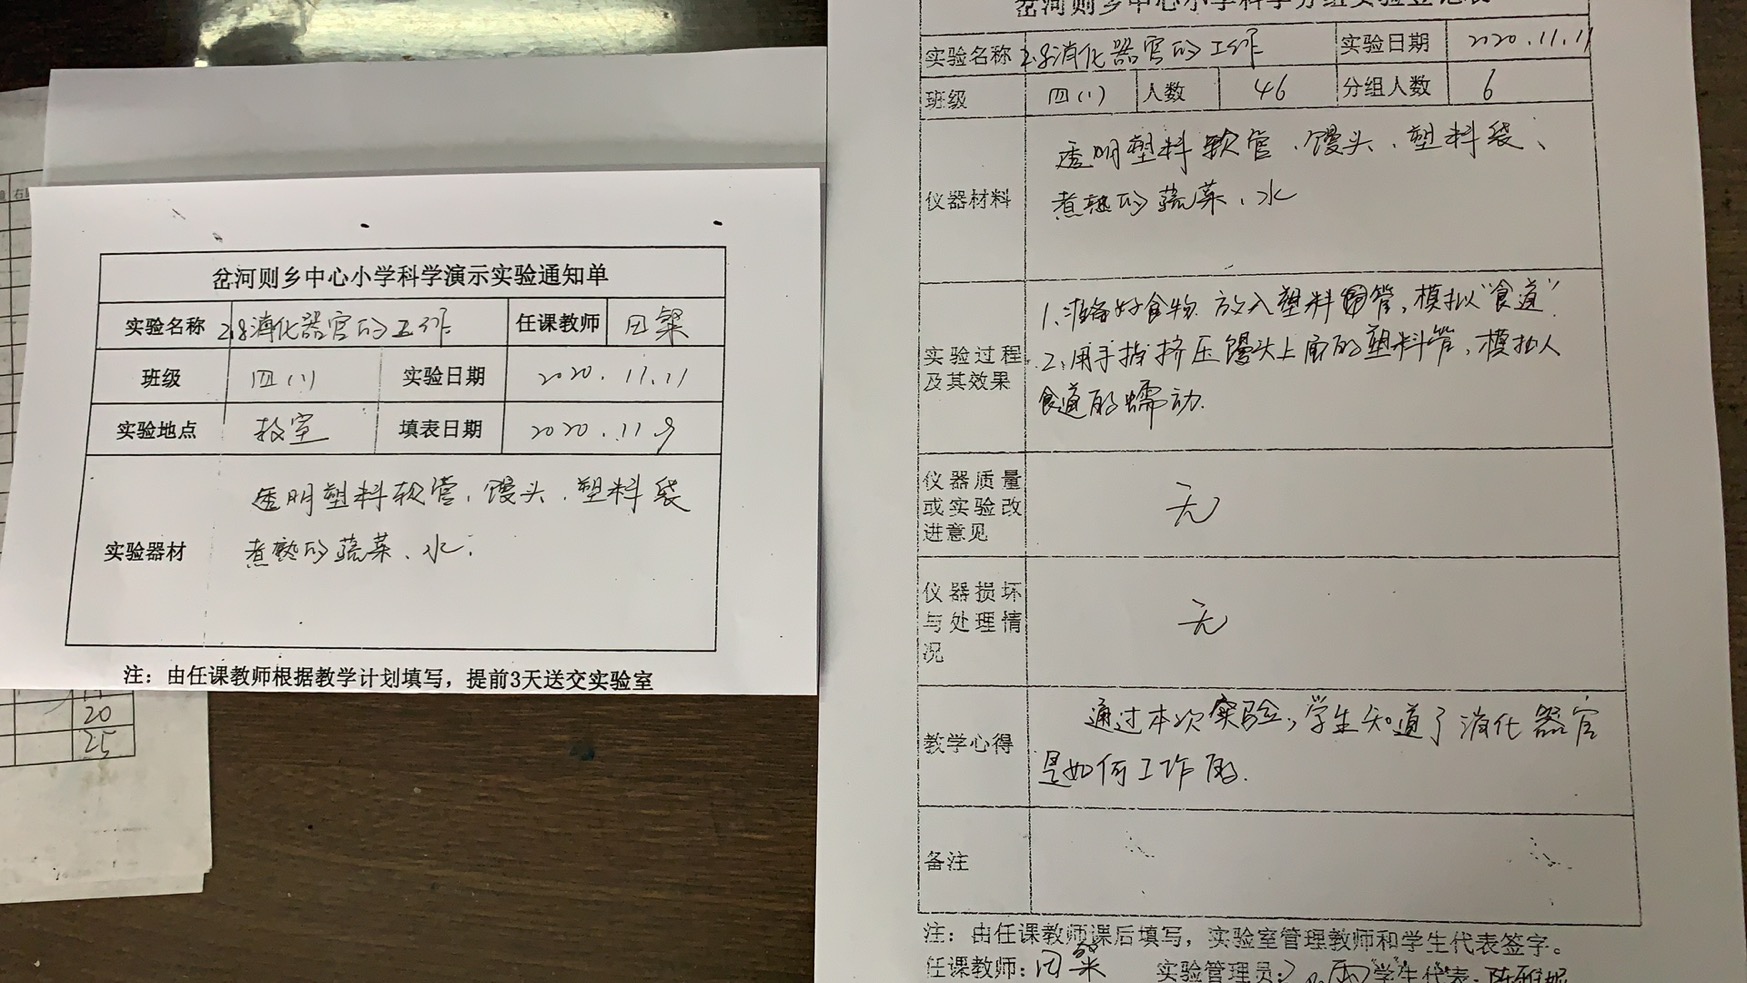 岔河则乡中心小学科学演示实验通知单
实验名称 2.8消化器官的工作 任课教师 田粲
班级 四(1) 实验日期 2020.11.11
实验地点 教室 填表日期 2020.11.9
实验器材
透明塑料软管、馒头、塑料袋
煮熟的蔬菜、水.
注：由任课教师根据教学计划填写，提前3天送交实验室
20
25
岔河则乡中心小学科学分组实验登记表
实验名称 2.8消化器官的工作 实验日期 2020.11.11
班级 四(1) 人数 46 分组人数 6
仪器材料
透明塑料软管、馒头、塑料袋、
煮熟的蔬菜、水
实验过程
及其效果
1、准备好食物放入塑料管，模拟“食道”.
2、用手指挤压馒头上面的塑料管，模拟人
食道的蠕动.
仪器质量
或实验改
进意见
无
仪器损坏
与处理情
况
无
教学心得
通过本次实验，学生知道了消化器官
是如何工作的.
备注
注：由任课教师课后填写，实验室管理教师和学生代表签字。
任课教师：田粲 实验管理员： 学生代表：